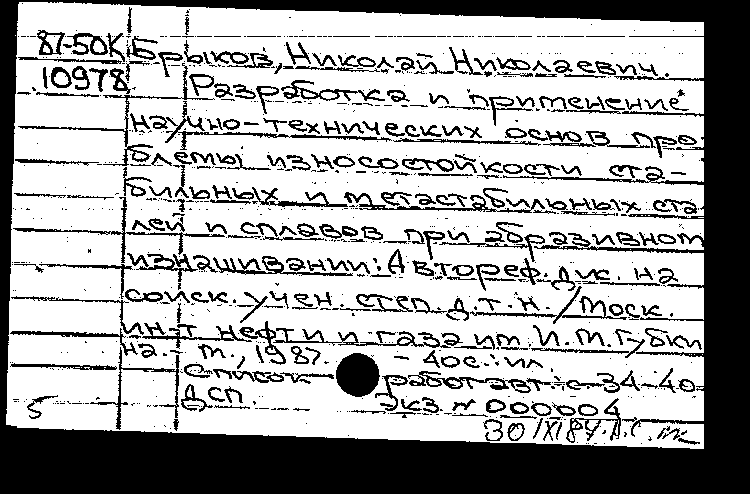 87-50К Брыков, Николай Николаевич.
10978 Разработка и применение
научно-технических основ про-
блемы износостойкости ста-
бильных и метастабильных ста-
лей и сплавов при абразивном
изнашивании: Автореф. дис. на
соиск. учен. степ. д.т.н. / Моск.
ин-т нефти и газа им. И.М. Губки
на. - М., 1987. - 40с.: ил.
Список работ авт.: с. 34-40
Дсп. Экз. № 000004
5